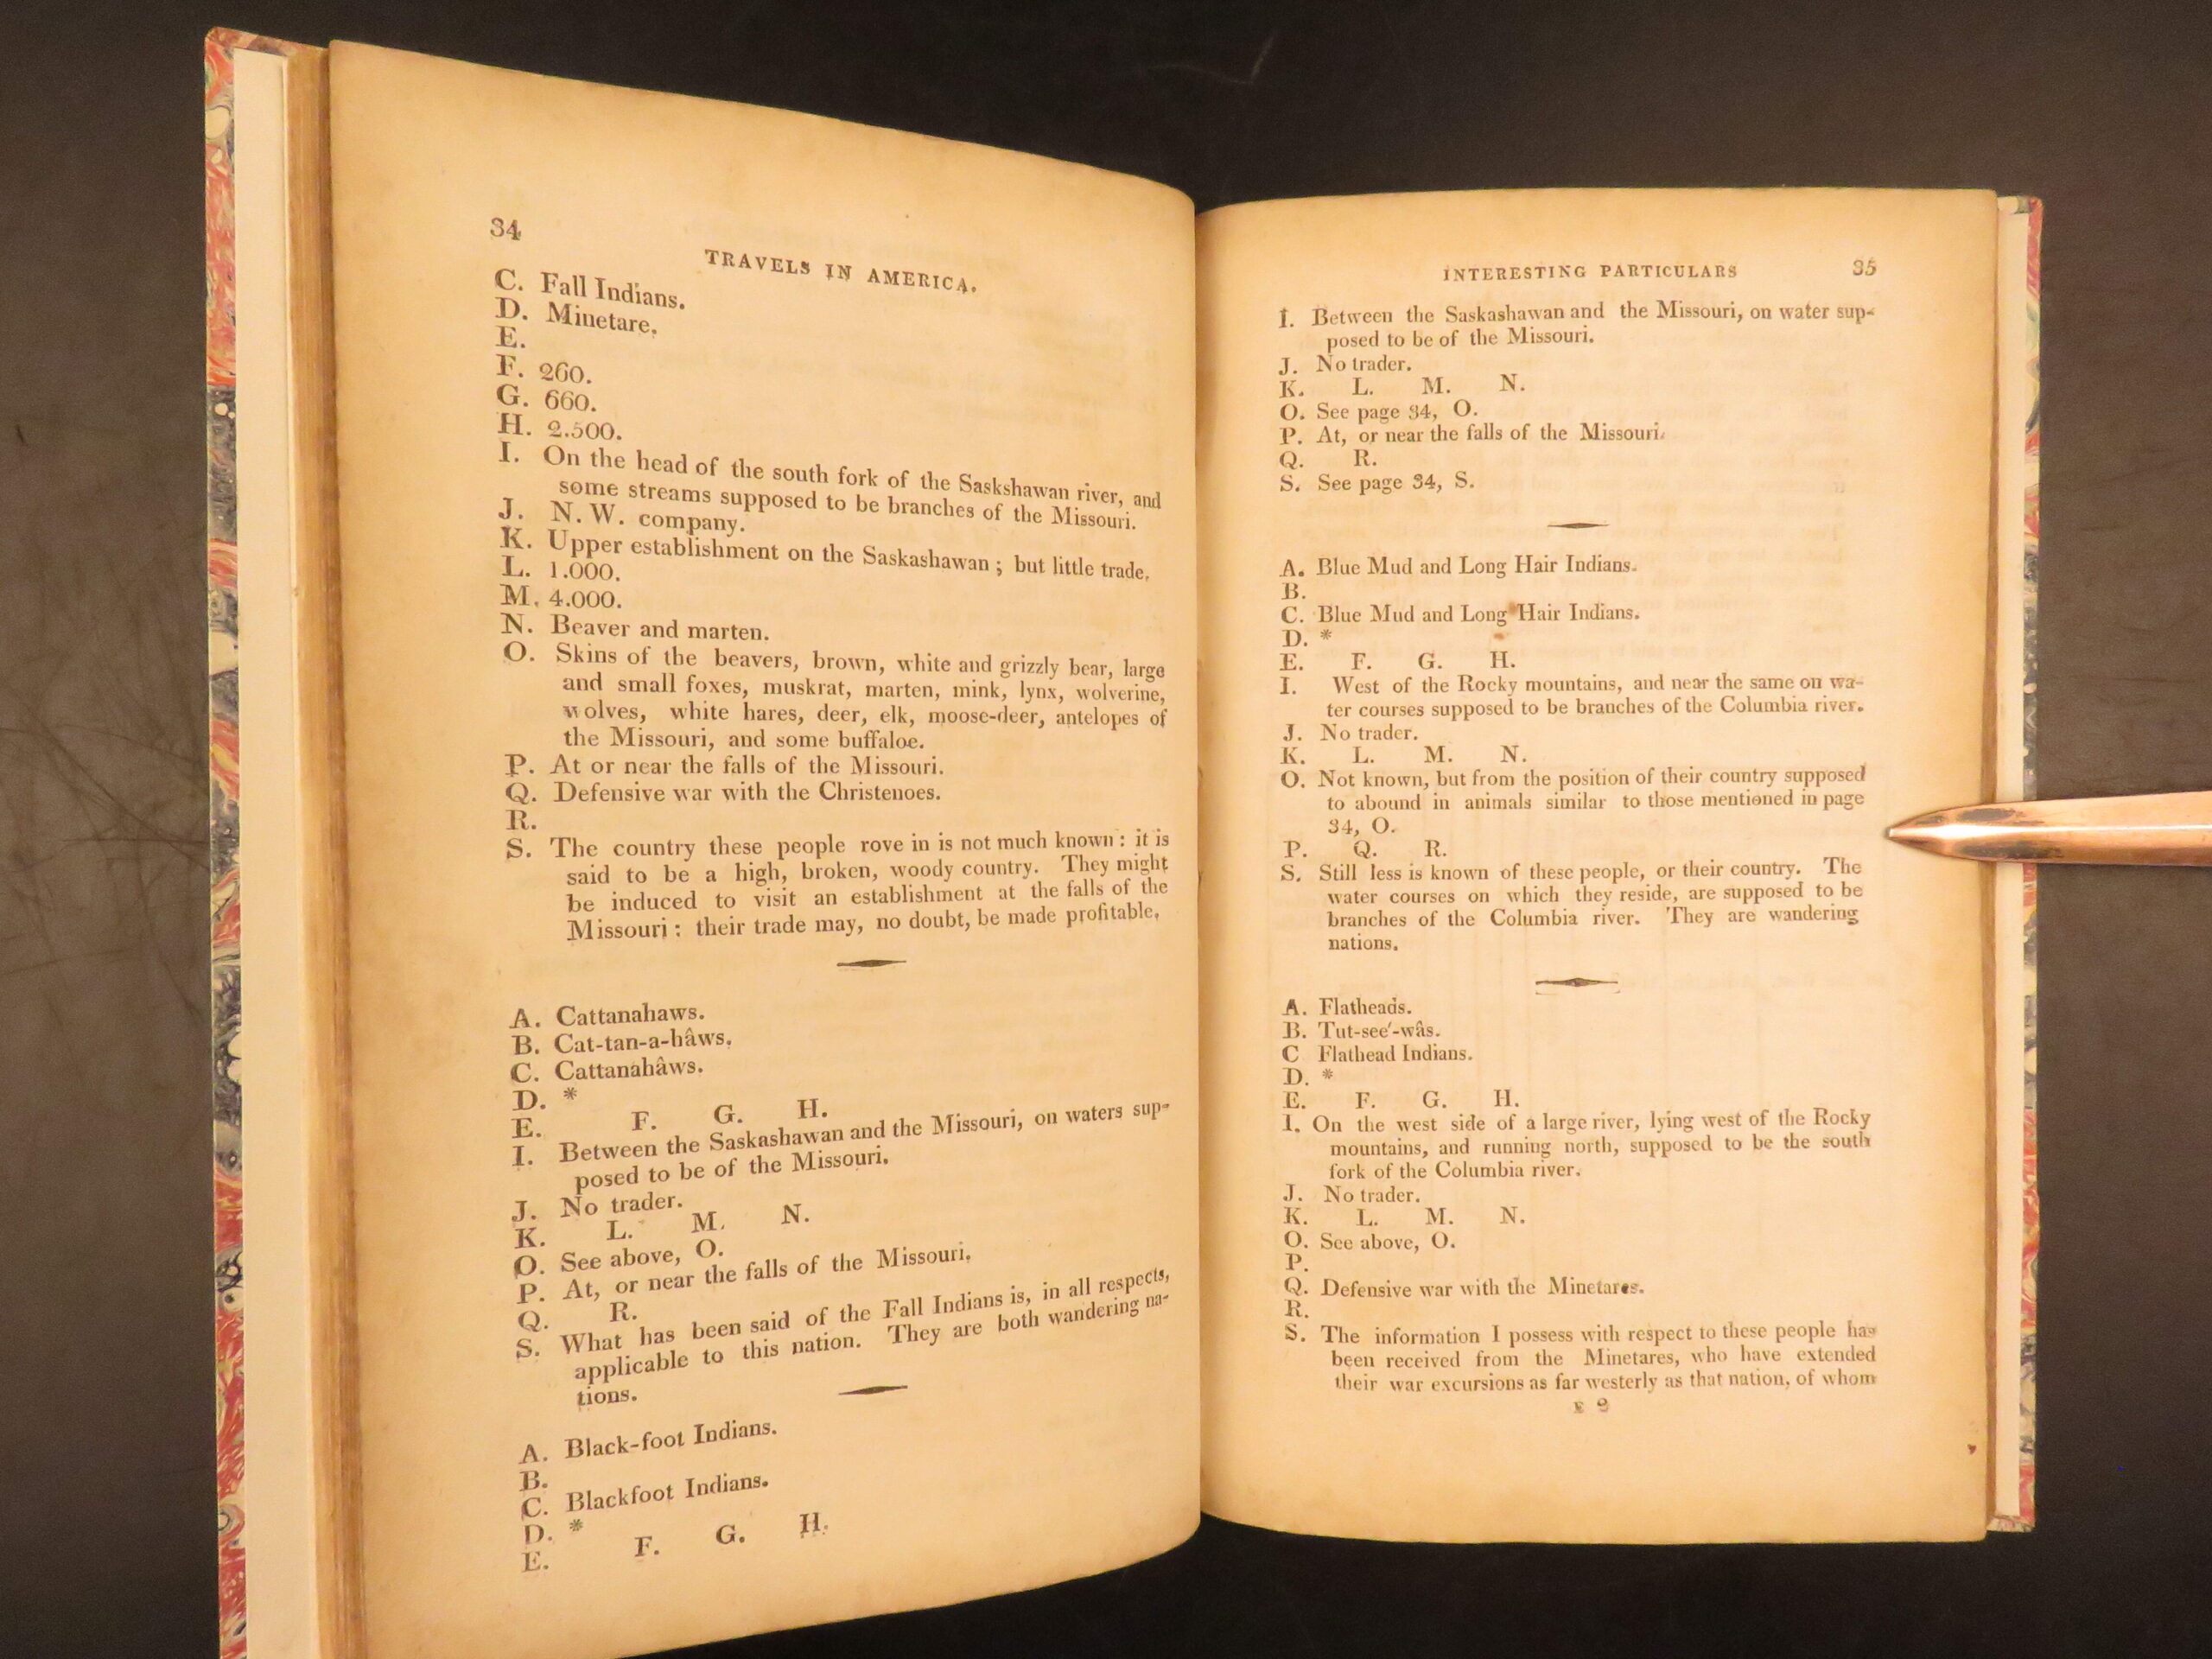 34
TRAVELS IN AMERICA.
C. Fall Indians.
D. Minetare.
E.
F. 260.
G. 660.
H. 2.500.
I. On the head of the south fork of the Saskshawan river, and
some streams supposed to be branches of the Missouri.
J. N. W. company.
K. Upper establishment on the Saskashawan ; but little trade.
L. 1.000.
M. 4.000.
N. Beaver and marten.
O. Skins of the beavers, brown, white and grizzly bear, large
and small foxes, muskrat, marten, mink, lynx, wolverine,
wolves, white hares, deer, elk, moose-deer, antelopes of
the Missouri, and some buffaloe.
P. At or near the falls of the Missouri.
Q. Defensive war with the Christenoes.
R.
S. The country these people rove in is not much known : it is
said to be a high, broken, woody country. They might
be induced to visit an establishment at the falls of the
Missouri : their trade may, no doubt, be made profitable.
A. Cattanahaws.
B. Cat-tan-a-hâws.
C. Cattanahâws.
D. *
E. F. G. H.
I. Between the Saskashawan and the Missouri, on waters sup-
posed to be of the Missouri.
J. No trader.
K. L. M. N.
O. See above, O.
P. At, or near the falls of the Missouri.
Q. R.
S. What has been said of the Fall Indians is, in all respects,
applicable to this nation. They are both wandering na-
tions.
A. Black-foot Indians.
B.
C. Blackfoot Indians.
D. *
E. F. G. H.
INTERESTING PARTICULARS 35
I. Between the Saskashawan and the Missouri, on water sup-
posed to be of the Missouri.
J. No trader.
K. L. M. N.
O. See page 34, O.
P. At, or near the falls of the Missouri.
Q. R.
S. See page 34, S.
A. Blue Mud and Long Hair Indians.
B.
C. Blue Mud and Long Hair Indians.
D. *
E. F. G. H.
I. West of the Rocky mountains, and near the same on wa-
ter courses supposed to be branches of the Columbia river.
J. No trader.
K. L. M. N.
O. Not known, but from the position of their country supposed
to abound in animals similar to those mentioned in page
34, O.
P. Q. R.
S. Still less is known of these people, or their country. The
water courses on which they reside, are supposed to be
branches of the Columbia river. They are wandering
nations.
A. Flatheads.
B. Tut-see'-wâs.
C Flathead Indians.
D. *
E. F. G. H.
I. On the west side of a large river, lying west of the Rocky
mountains, and running north, supposed to be the south
fork of the Columbia river.
J. No trader.
K. L. M. N.
O. See above, O.
P.
Q. Defensive war with the Minetares.
R.
S. The information I possess with respect to these people has
been received from the Minetares, who have extended
their war excursions as far westerly as that nation, of whom
E 2